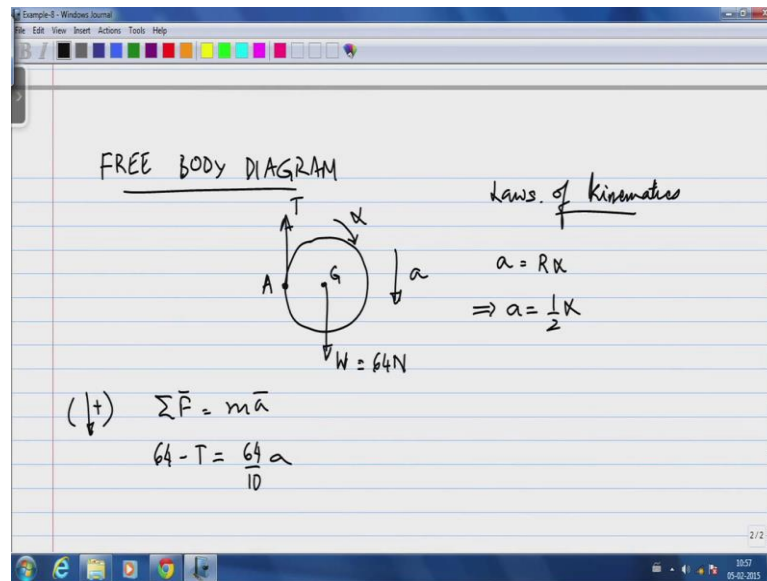 Example-8 - Windows Journal
File Edit View Insert Actions Tools Help
B I
FREE BODY DIAGRAM
Laws of Kinematics
T
α
A
G
a
W = 64N
a = Rα
⇒ a = 1/2 α
(↓+) ΣF̄ = mā
64 - T = 64/10 a
2/2
10:57
05-02-2015